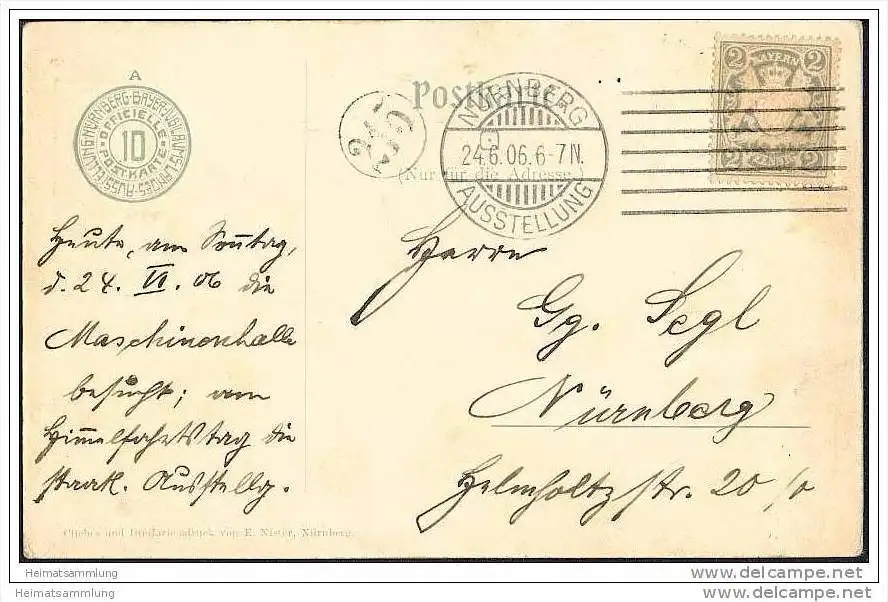 A
NÜRNBERG·BAYER·JUBILÄUMS·LANDES·AUSSTELLUNG
OFFICIELLE
10
POSTKARTE
Postkarte
(Nur für die Adresse.)
NÜRNBERG
24.6.06.6-7N.
AUSSTELLUNG
2 BAYERN 2
2 PFENNIG 2
Heute, am Sonntag,
d. 24. VI. 06 die
Maschinenhalle
besucht; am
Himmelfahrtstag die
staatl. Ausstellg.
Herrn
Gg. Segl
Nürnberg
Helmholtzstr. 20/0
Clichés und Dreifarbendruck von E. Nister, Nürnberg.
Heimatsammlung
www.delcampe.net
Heimatsammlung
www.delcampe.net